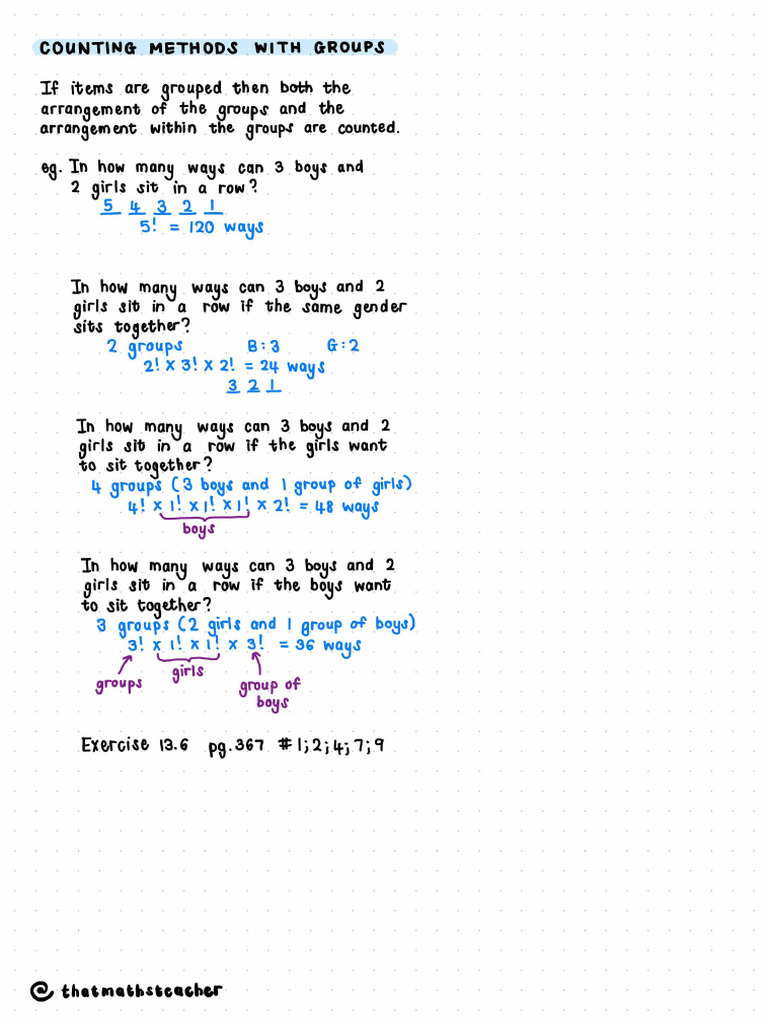 COUNTING METHODS WITH GROUPS
If items are grouped then both the
arrangement of the groups and the
arrangement within the groups are counted.
eg. In how many ways can 3 boys and
2 girls sit in a row?
5 4 3 2 1
5! = 120 ways
In how many ways can 3 boys and 2
girls sit in a row if the same gender
sits together?
2 groups B:3 G:2
2! x 3! x 2! = 24 ways
3 2 1
In how many ways can 3 boys and 2
girls sit in a row if the girls want
to sit together?
4 groups (3 boys and 1 group of girls)
4! x 1! x 1! x 1! x 2! = 48 ways
boys
In how many ways can 3 boys and 2
girls sit in a row if the boys want
to sit together?
3 groups (2 girls and 1 group of boys)
3! x 1! x 1! x 3! = 36 ways
groups girls group of
boys
Exercise 13.6 pg.367 #1;2;4;7;9
@thatmathsteacher